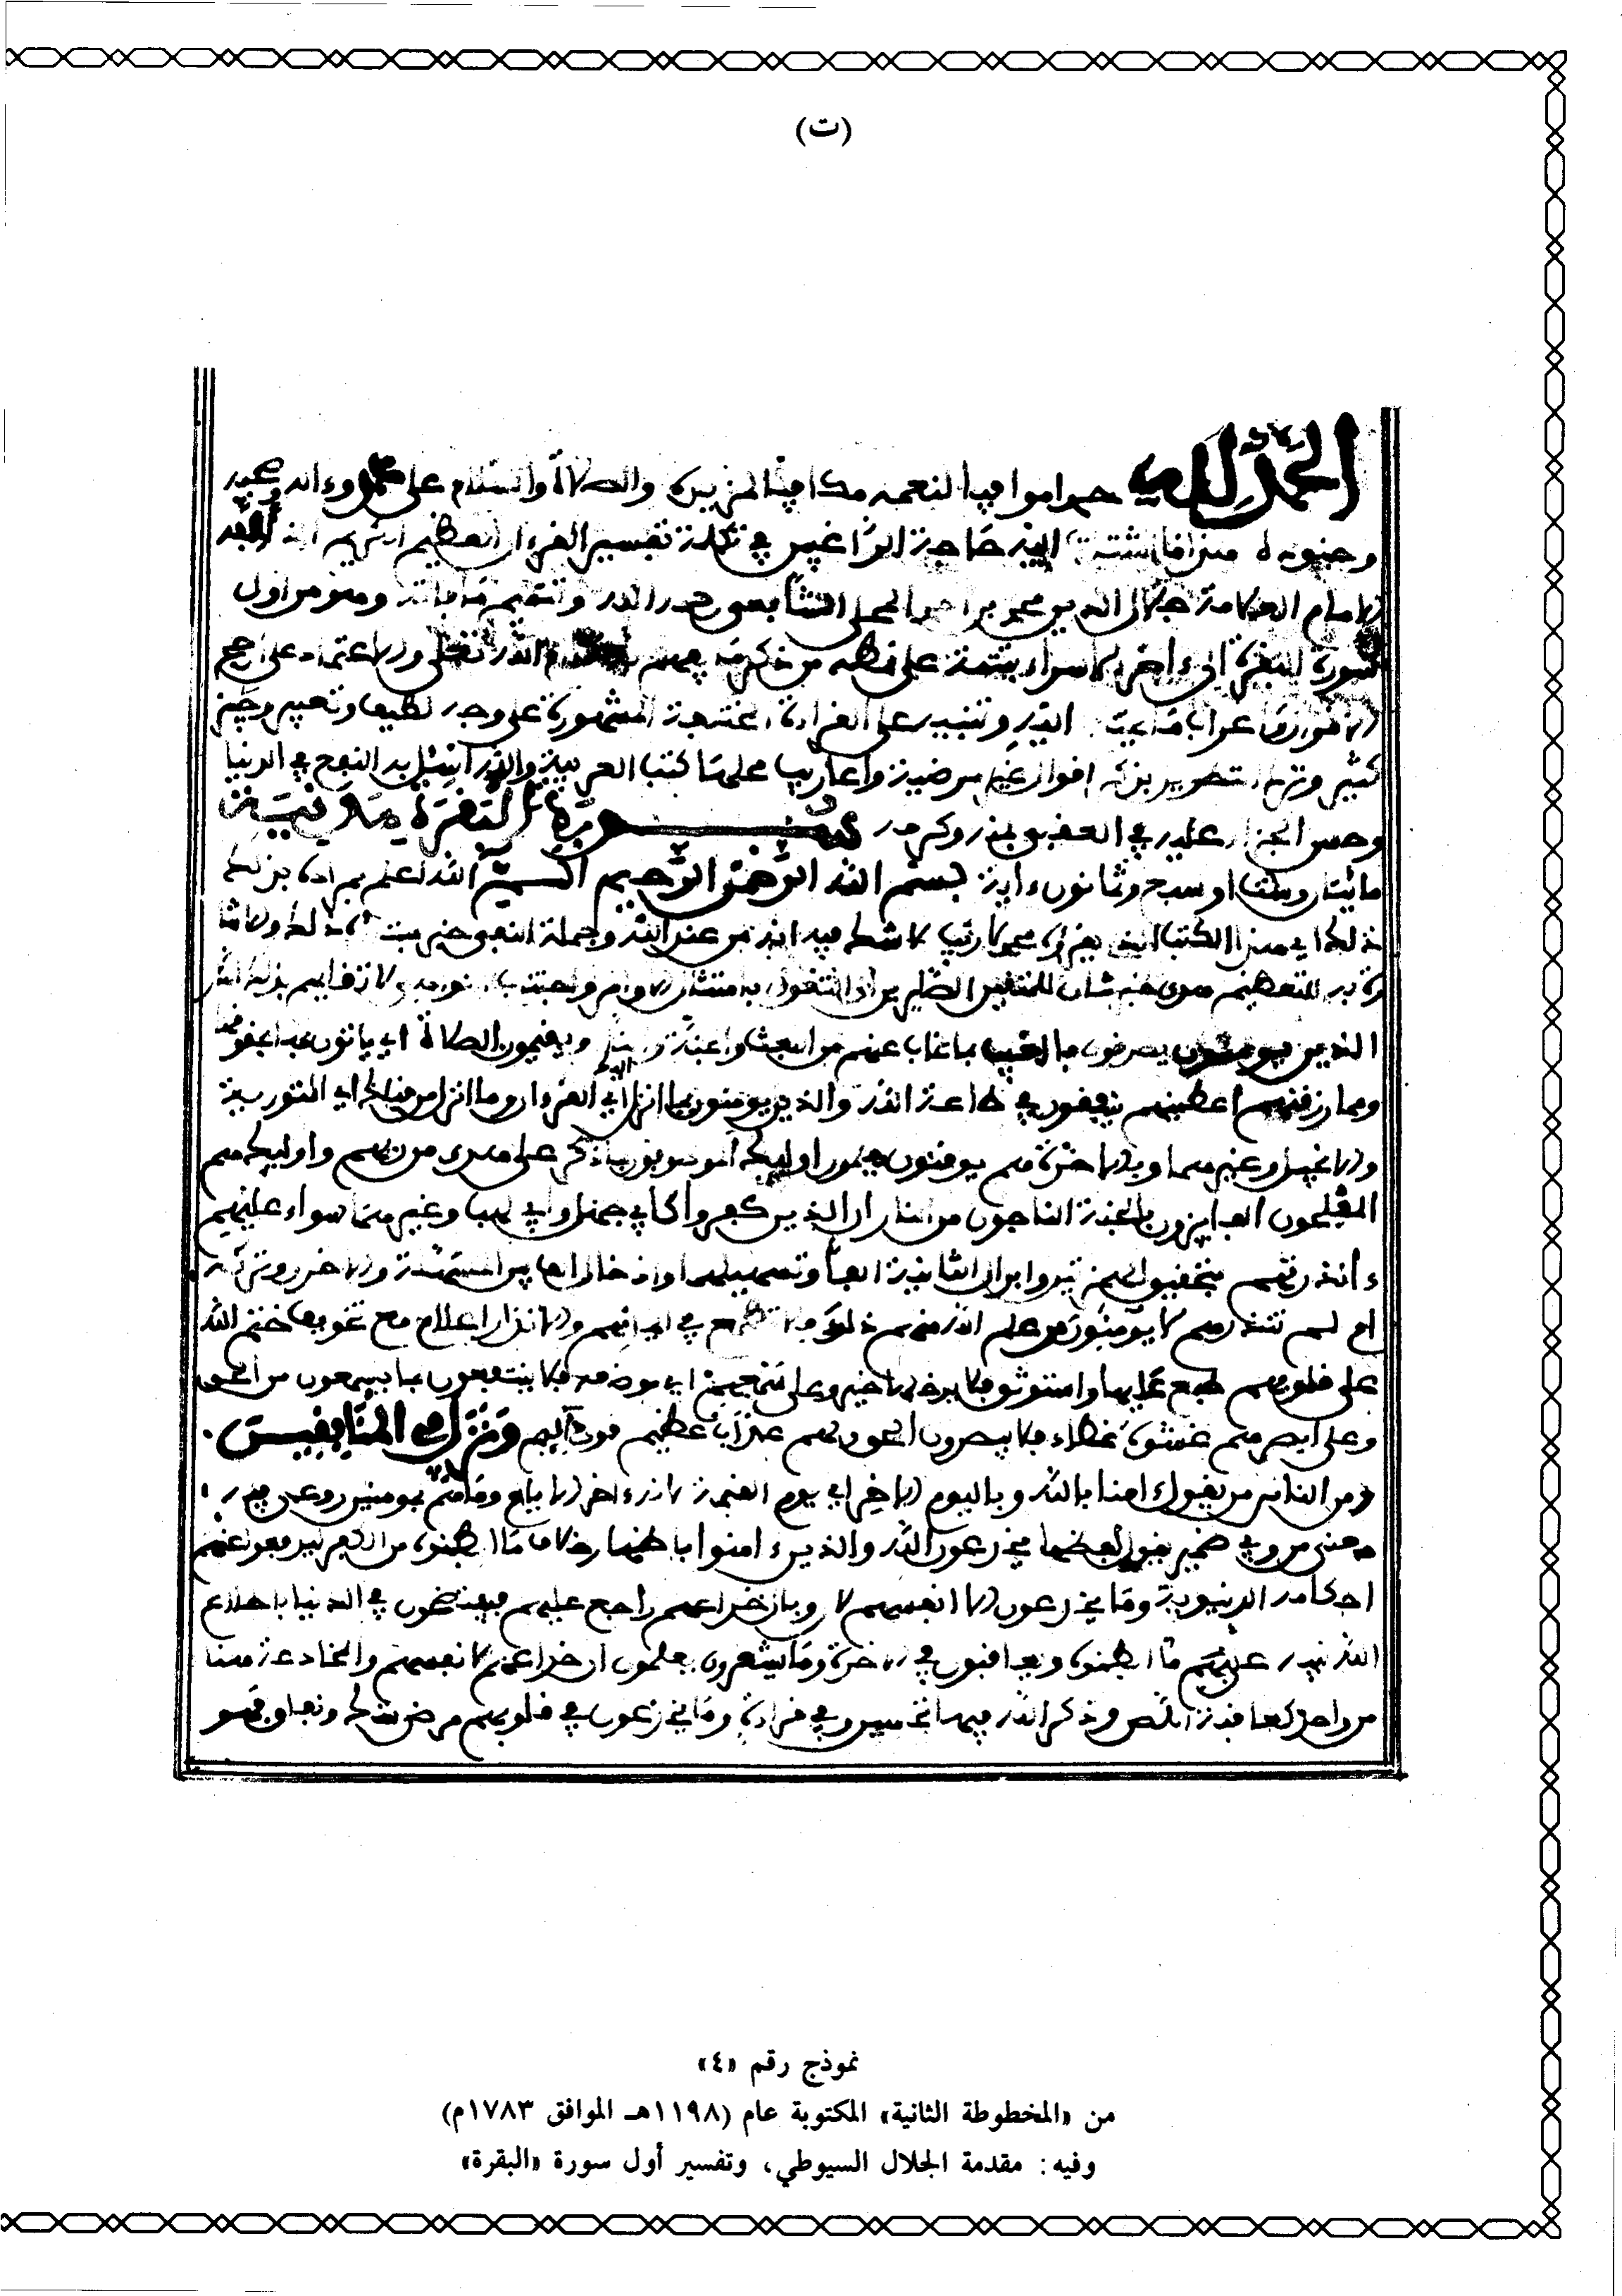 (ت)
الحمد لله حمدا موافيا لنعمه مكافيا لمزيده والصلاة والسلام على محمد وءاله وصحبه
وجنوده هذا ما اشتدت اليه حاجة الراغبين في تكملة تفسير القرءان العظيم الكريم الذي ألفه
الامام العلامة جلال الدين محمد بن احمد المحلي الشافعي رحمه الله وتتميم ما فاته وهو من اول
سورة البقرة الى ءاخر الاسراء بتتمة على نمطه من ذكر ما يفهم به كلام الله تعلى والاعتماد على ارجح
الاقوال واعراب ما يحتاج اليه وتنبيه على القراءة المختلفة المشهورة على وجه لطيف وتعبير وجيز
وترك التطويل بذكر اقوال غير مرضية واعاريب محلها كتب العربية والله اسئل به النفع في الدنيا
وحسن الجزاء عليه في العقبى بمنه وكرمه سورة البقرة مدنية
مائتان وست او سبع وثمانون ءاية بسم الله الرحمن الرحيم الـم الله اعلم بمراده بذلك
ذلك اي هذا الكتاب الذي يقرؤه محمد لا ريب لا شك فيه انه من عند الله وجملة النفي خبر مبتدؤه ذلك والاشارة
به للتعظيم هدى خبر ثان للمتقين الصائرين الى التقوى بامتثال الاوامر واجتناب النواهي لاتقائهم بذلك النار
الذين يومنون يصدقون بالغيب بما غاب عنهم من البعث والجنة والنار ويقيمون الصلاة اي ياتون بها بحقوقها
ومما رزقنهم اعطينهم ينفقون في طاعة الله والذين يومنون بما انزل اليك اي القرءان وما انزل من قبلك اي التورية
والانجيل وغيرهما وبالاخرة هم يوقنون يعلمون اوليك الموصوفون بما ذكر على هدى من ربهم واوليك هم
المفلحون الفايزون بالجنة الناجون من النار ان الذين كفروا كابي جهل وابي لهب وغيرهما سواء عليهم
ءأنذرتهم بتحقيق الهمزتين وابدال الثانية الفا وتسهيلها وادخال الف بين المسهلة والاخرى وتركه
ام لم تنذرهم لا يومنون لعلم الله منهم ذلك فلا تطمع في ايمانهم والانذار اعلام مع تخويف ختم الله
على قلوبهم طبع عليها واستوثق فلا يدخلها خير وعلى سمعهم اي مواضعه فلا ينتفعون بما يسمعون من الحق
وعلى ابصرهم غشوة غطاء فلا يبصرون الحق ولهم عذاب عظيم قوي دائم ونزل في المنافقين
ومن الناس من يقول ءامنا بالله وباليوم الاخر اي يوم القيمة لانه ءاخر الايام وما هم بمومنين روعي فيه
معنى من وفي ضمير يقول لفظها يخدعون الله والذين ءامنوا باظهار خلاف ما ابطنوه من الكفر ليدفعوا عنهم
احكامه الدنيوية وما يخدعون الا انفسهم لان وبال خداعهم راجع عليهم فيفتضحون في الدنيا باطلاع
الله نبيه عليهم ما ابطنوه ويعاقبون في الاخرة وما يشعرون يعلمون ان خداعهم لانفسهم والمخادعة هنا
من واحد كعاقبت اللص وذكر الله فيها تحسين وفي قراءة وما يخدعون في قلوبهم مرض شك ونفاق فهو
نموذج رقم «٤»
من «المخطوطة الثانية» المكتوبة عام (١١٩٨هـ الموافق ١٧٨٣م)
وفيه: مقدمة الجلال السيوطي، وتفسير أول سورة «البقرة»